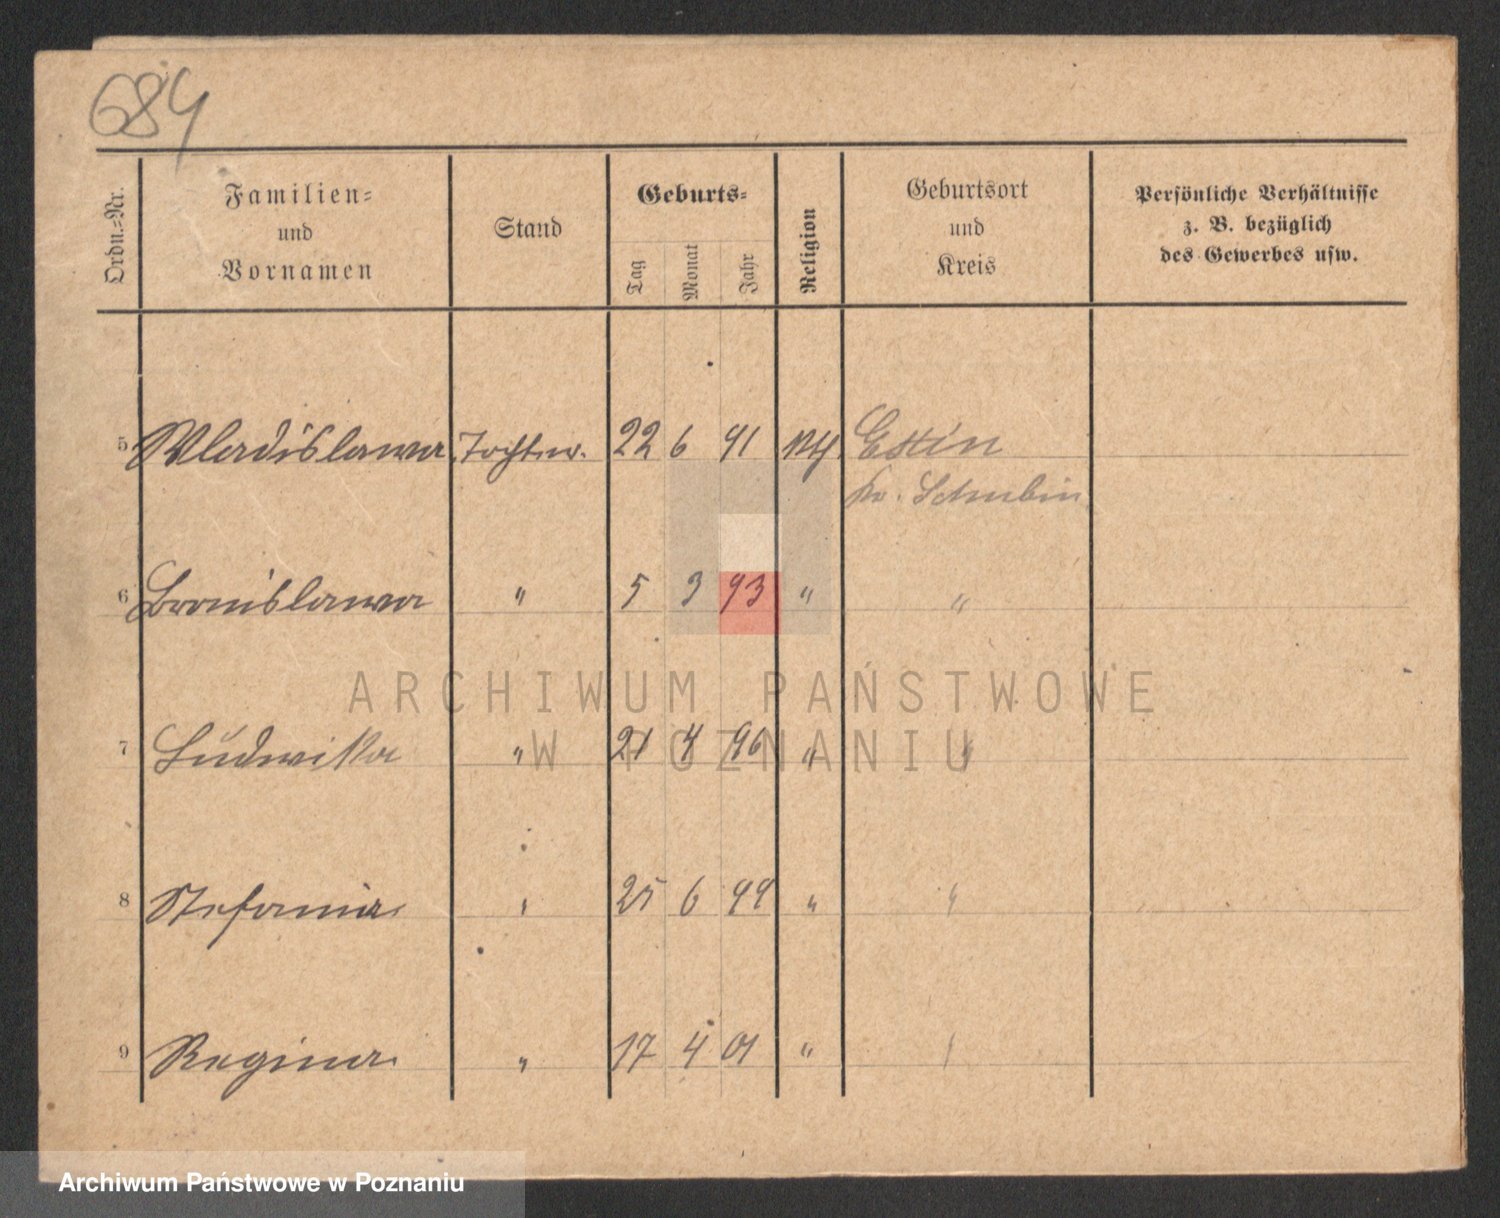 684
Ordn.-Nr.
Familien-
und
Vornamen
Stand
Geburts-
Tag
Monat
Jahr
Religion
Geburtsort
und
Kreis
Persönliche Verhältnisse
z. B. bezüglich
des Gewerbes usw.
5 Wladislawa Tochter. 22 6 91 Exin
Kr. Schubin
6 Bronislawa " 5 3 93 " "
ARCHIWUM PAŃSTWOWE
W POZNANIU
7 Ludwika " 21 4 96 " "
8 Stefania " 25 6 99 " "
9 Regina " 17 4 01 " "
Archiwum Państwowe w Poznaniu